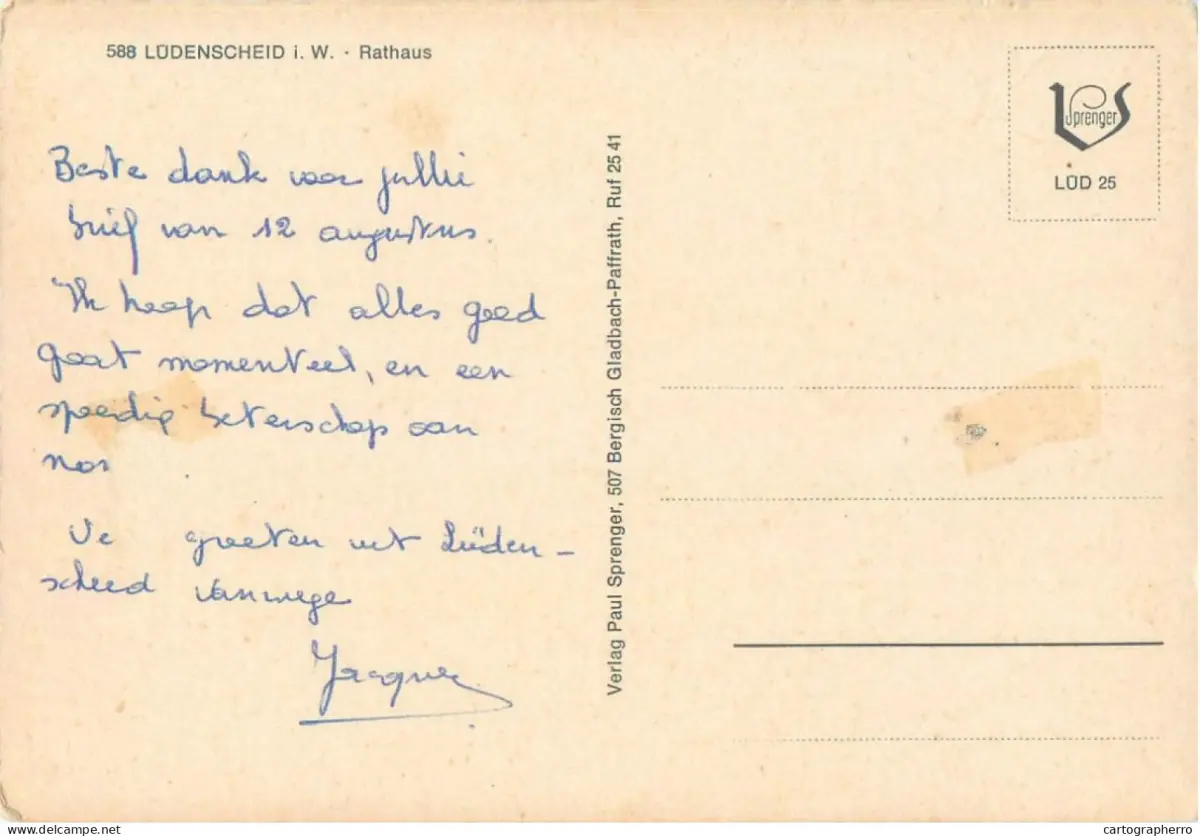 588 LÜDENSCHEID i. W. · Rathaus
Sprenger
LÜD 25
Beste dank voor jullie
brief van 12 augustus
Ik hoop dat alles goed
gaat momenteel, en een
spoedig beterschap aan
groeten uit Lüden-
scheid vanwege
Jacques
Verlag Paul Sprenger, 507 Bergisch Gladbach-Paffrath, Ruf 25 41
delcampe.net
cartographerro